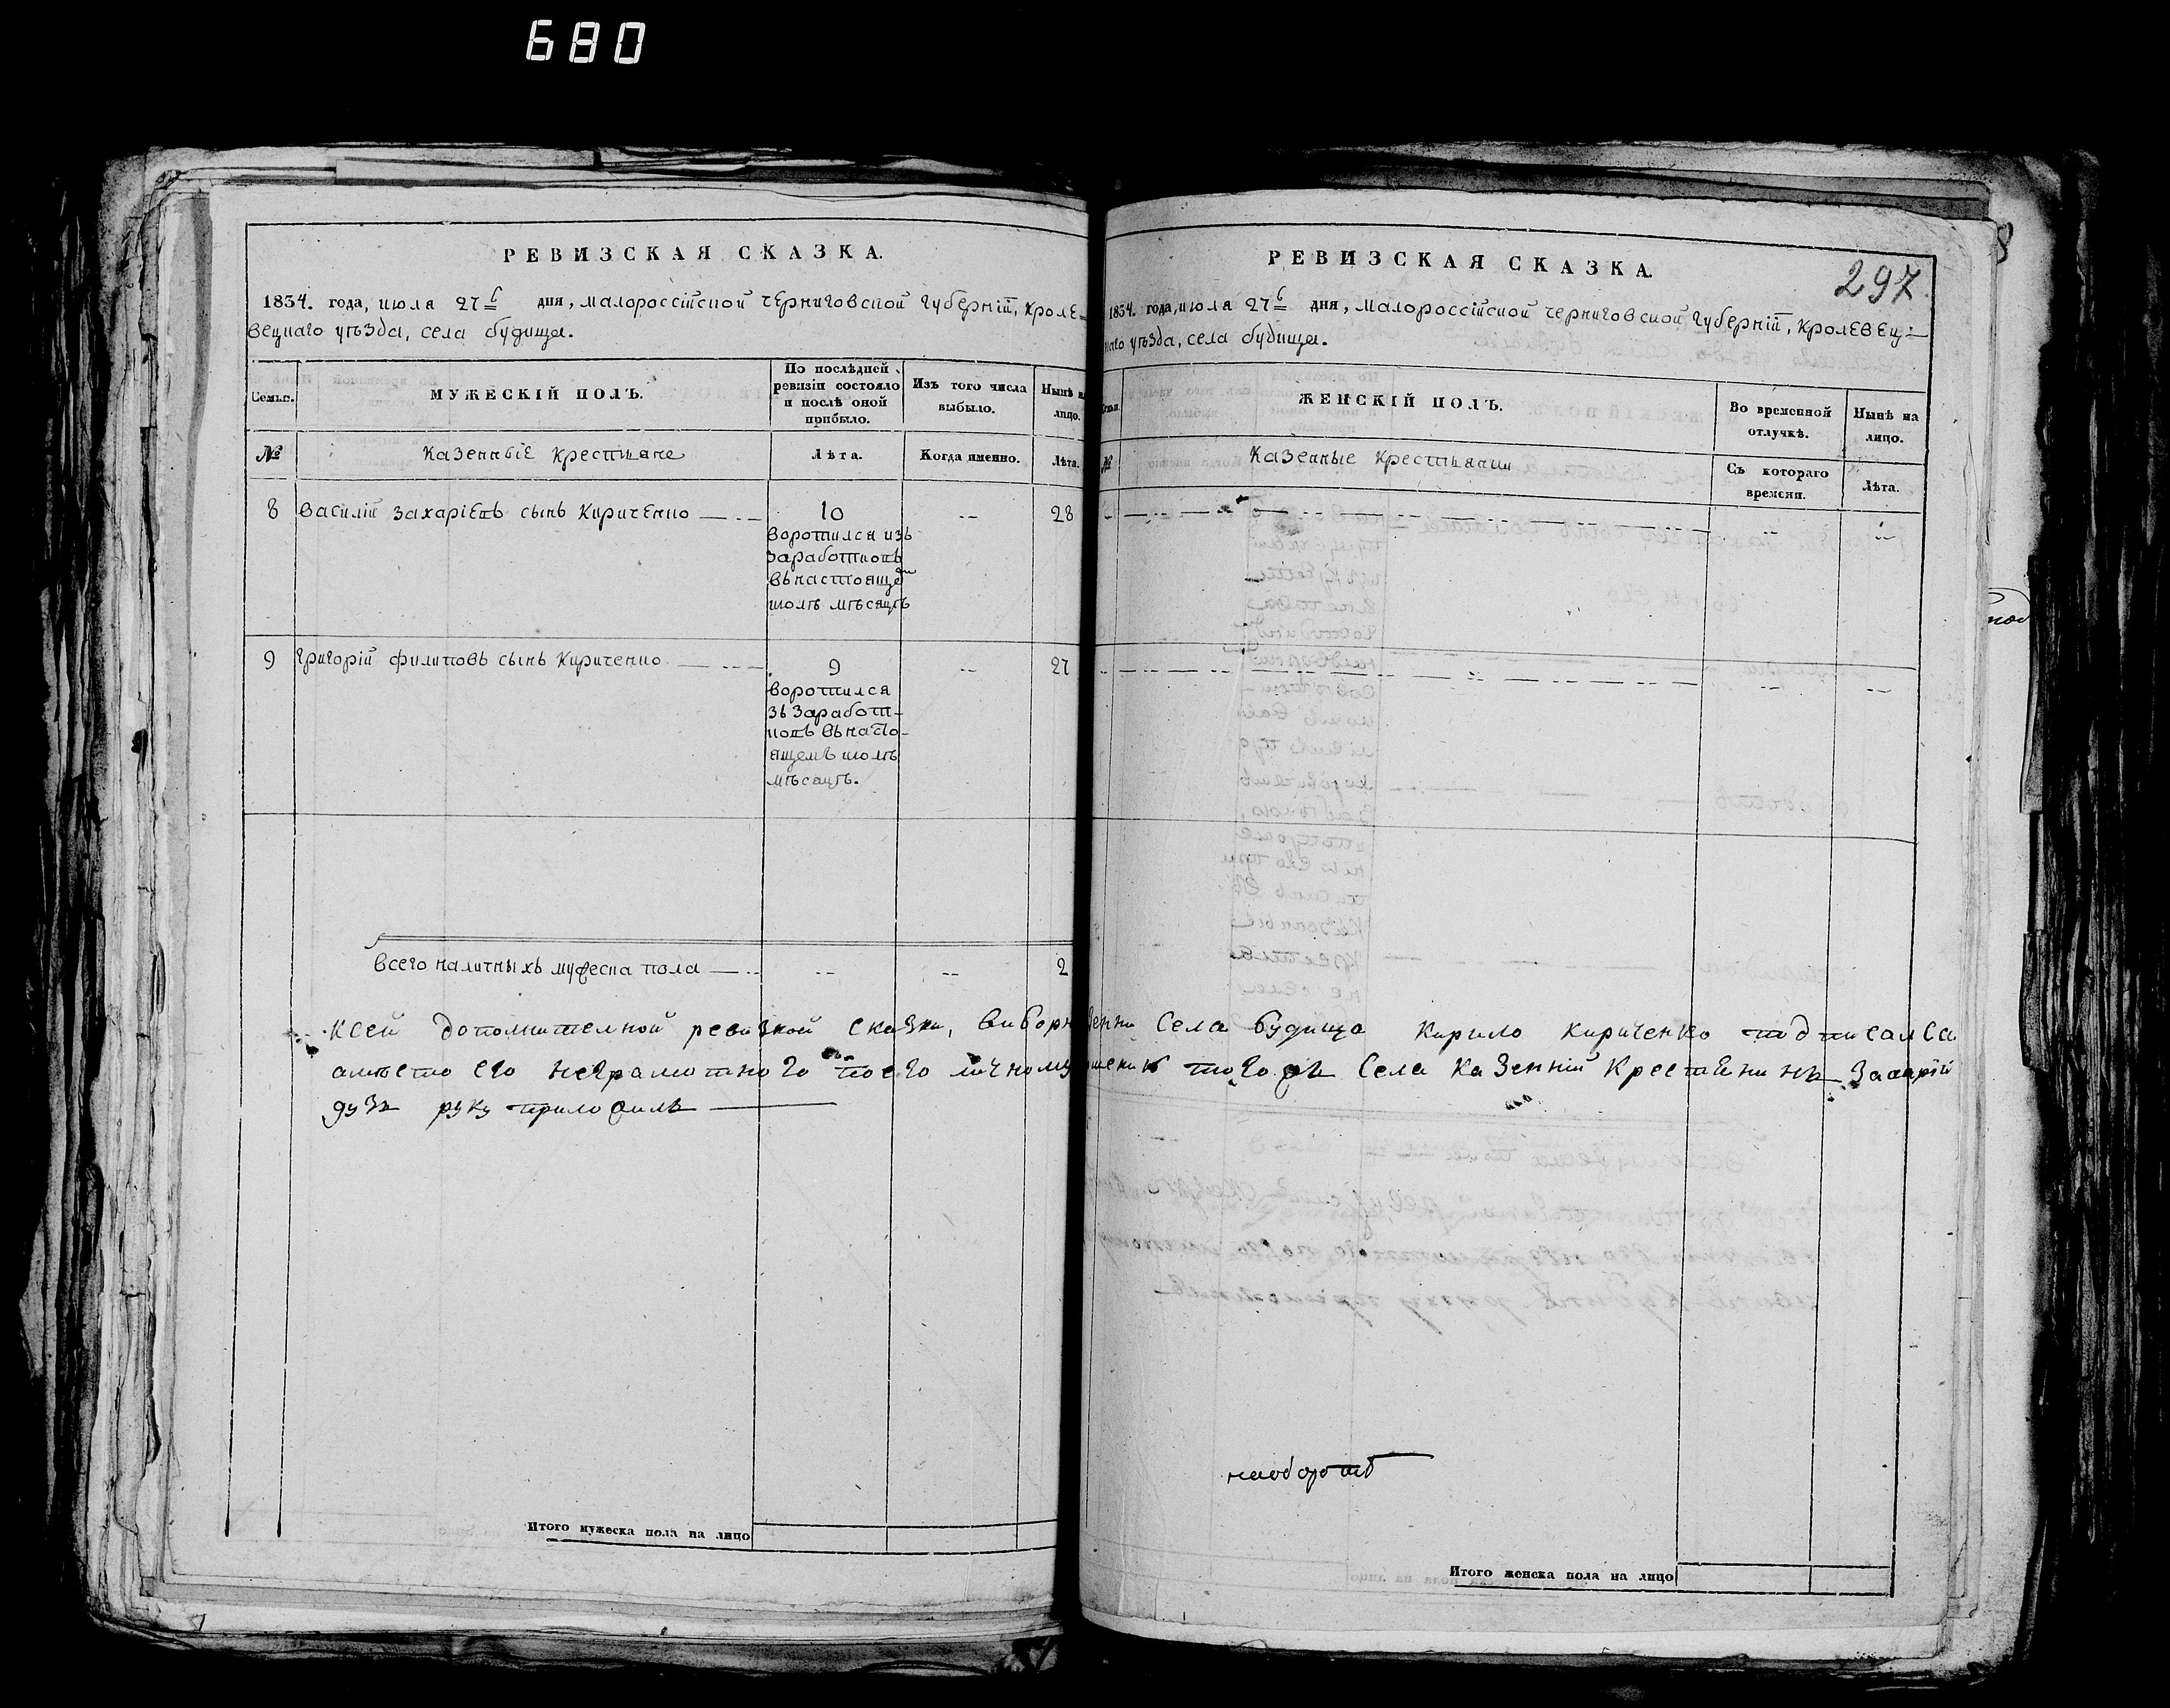 680
РЕВИЗСКАЯ СКАЗКА.
1834. года, июля 27 дня, малороссійской черниговской губерніи, кроле=
вецкаго уѣзда, села будища.
Семьи.
МУЖЕСКІЙ ПОЛЪ.
По послѣдней
ревизіи состояло
и послѣ оной
прибыло.
Изъ того числа
выбыло.
Нынѣ на
лицо.
№
Казенные крестьяне
Лѣта.
Когда именно.
Лѣта.
8 василій захаріевъ сынъ Кириченко 10 28
воротился изъ
заработковъ
въ настояще
іюлѣ мѣсяцѣ
9 григорій филиповъ сынъ Кириченко 9 27
воротился
зъ заработ-
ковъ въ насто-
ящемъ іюлѣ
мѣсяцѣ.
всего наличныхъ мужеска пола 2
Итого мужеска пола на лицо
РЕВИЗСКАЯ СКАЗКА.
297
1834. года, июля 27 дня, малороссійской черниговской губерніи, кролевец=
каго уѣзда, села будища.
ЖЕНСКІЙ ПОЛЪ.
Во временной
отлучкѣ.
Нынѣ на
лицо.
№
Казенные крестьянки
Съ котораго
времени.
Лѣта.
Ксей дополнителной ревизкой сказки, села будища Кирило Кириченко подписалса
амѣсто его неграмотного поего личному того жъ села Казенній Крестенинъ
руку приложилъ
наоборотѣ
Итого женска пола на лицо